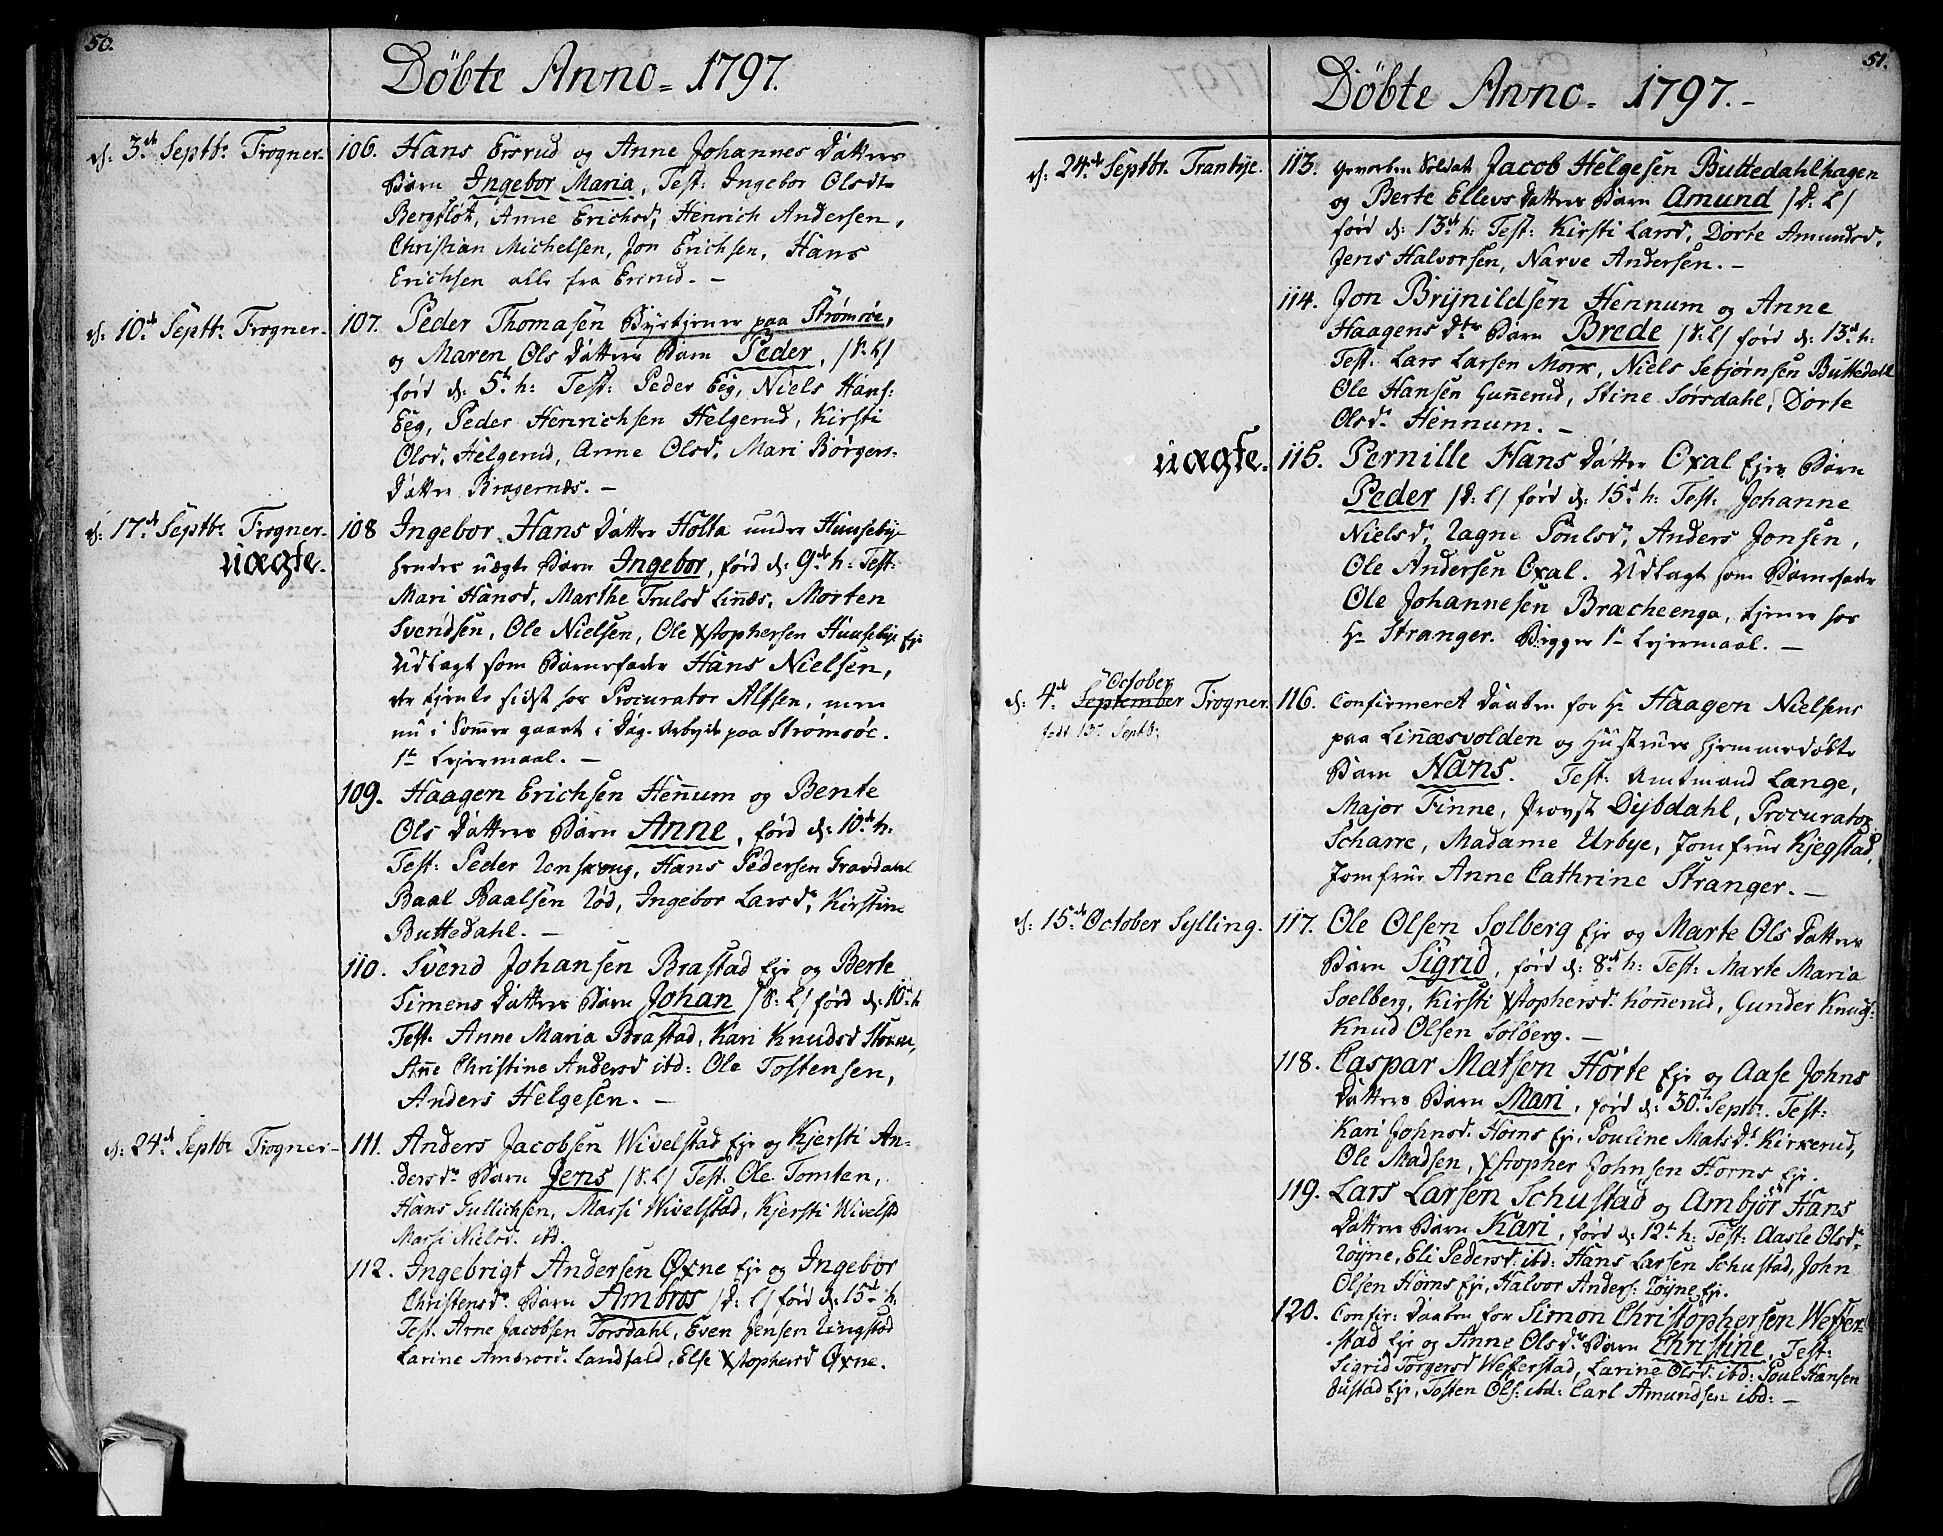 50.
Döbte Anno = 1797.
d: 3.de Septbr Frogner.
106. Hans Ersrud og Anne Johannes Datters
Barn Ingebor Maria, Test: Ingebor Olsdtr
Bergsløt, Anne Erichsd, Henrich Andersen,
Christian Michelsen, Jon Erichsen, Hans
Erichsen alle fra Ersrud. -
d: 10.de Septbr Frogner.
107. Peder Thomasen Byetjener paa Strømsøe,
og Maren Ols Datters Barn Peder, /S: L/
førd d: 5.te h: Test: Peder Eeg, Niels Hans:
Eeg, Peder Henrichsen Helgerud, Kirsti
Olsd. Helgerud, Anne Olsd, Mari Børgers-
Datter Bragernæs. -
d: 17.de Septbr Frogner.
uægte.
108 Ingebor Hans Datter Holta under Huusebye
hendes uægte Barn Ingebor, førd d: 9.de h: Test:
Mari Hansd, Marthe Trulsd Linnæs, Morten
Svendsen, Ole Nielsen, Ole Xstophersen Huusebye Eje
Udlagt som Barnefader Hans Nielsen,
der tjente sidst hos Procurator Alfsen, men
nu i Sommer gaaet i Dag-Arbejde paa Strømsöe.
1te Lejermaal. -
109. Haagen Erichsen Hennum og Bente
Ols Datters Barn Anne, førd d: 10.de h:
Test: Peder Lenskoug, Hans Pedersen Gravdahl
Baal Baalsen Rød, Ingebor Larsdr, Kirstine
Buttedahl. -
110. Svend Johansen Brastad Eje og Berte
Simens Datters Barn Johan /S: L/ førd d: 10.de h
Test: Anne Maria Brastad, Kari Knudsd Storm,
Anne Christine Andersd ibd: Ole Tostensen,
Anders Helgesen. -
d: 24.de Septbr Frogner -
111. Anders Jacobsen Wivelstad Eje og Kjersti An-
dersdr Barn Jens /S: L/ Test: Ole Tomten,
Hans Gullichsen, Massi Wivelstad, Kjersti Wivelstd
Massi Nielsd. ibd.
112. Ingebrigt Andersen Øxne Eje og Ingebor
Christensdr Barn Ambros /D: L/ førd d: 15.de h:
Test: Arne Jacobsen Torsdahl, Even Jensen Lingstad
Larine Ambrosd. Landfald, Else Xstophersd Øxne.
51.
Döbte Anno = 1797. -
d: 24.de Septbr. Tranbye.
113. Gevorben Soldat Jacob Helgesen Buttedahlhagen
og Berte Ellevs Datters Barn Amund /D: L/
førd d: 13.de h: Test: Kirsti Larsd, Dorte Amundsd,
Jens Halvorsen, Narve Andersen. -
114. Jon Brynildsen Hennum og Anne
Haagens Dtrs Barn Brede /S: L/ førd d: 13.de h:
Test: Lars Larsen Mork, Niels Sebjørnsen Buttedahl
Ole Hansen Gunnerud, Stine Sørsdahl, Dorte
Olsdr Hennum. -
uægte.
115. Pernille Hans Datter Oxal Ejes Barn
Peder /D: L/ førd d: 15.de h: Test: Johanne
Nielsd, Ragne Poulsd, Anders Jonsen,
Ole Andersen Oxal. Udlagt som Barnefader
Ole Johannesen Bracheenga, tjener hos
Hr Stranger. Begges 1te Lejermaal. -
d: 4.de September October Frogner.
født 13de Septb:
116. Confirmeret Daaben for Hr Haagen Nielsens
paa Linnæsvolden og Hustrues hjemmedøbte
Barn Hans. Test: Amtmand Lange,
Major Finne, Provst Dybdahl, Procurator
Scharre, Madame Urbye, Jomfrue Kjegstad,
Jomfrue Anne Cathrine Stranger. -
d: 15.de October Sylling.
117. Ole Olsen Solberg Eje og Marte Ols Datters
Barn Sigrid, førd d: 8.de h: Test: Marte Maria
Soelberg, Kirsti Xstophersdr Konnerud, Gunder Knuds:
Knud Olsen Solberg. -
118. Caspar Matsen Hørte Eje og Aase Johns
Datters Barn Mari, førd d: 30.te Septbr. Test:
Kari Johnsd. Horns Eje, Pouline Matsdr Kirkerud,
Ole Madsen, Xstopher Johnsen Horns Eje.
119. Lars Larsen Schustad og Ambjør Hans
Datters Barn Kari, førd d: 12.te h: Test: Aasle Olsdr
Røyne, Eli Pedersd. ibd: Hans Larsen Schustad, John
Olsen Horns Eje, Halvor Anders: Røyne Eje.
120. Confir: Daaben for Simon Christophersen Wefer-
stad Eje og Anne Olsdr Barn Christine, Test:
Sigrid Torgersd Weferstad, Larine Olsd: ibd: Poul Hansen
Justad Eje, Tosten Ols: ibd: Carl Amundsen ibd: -